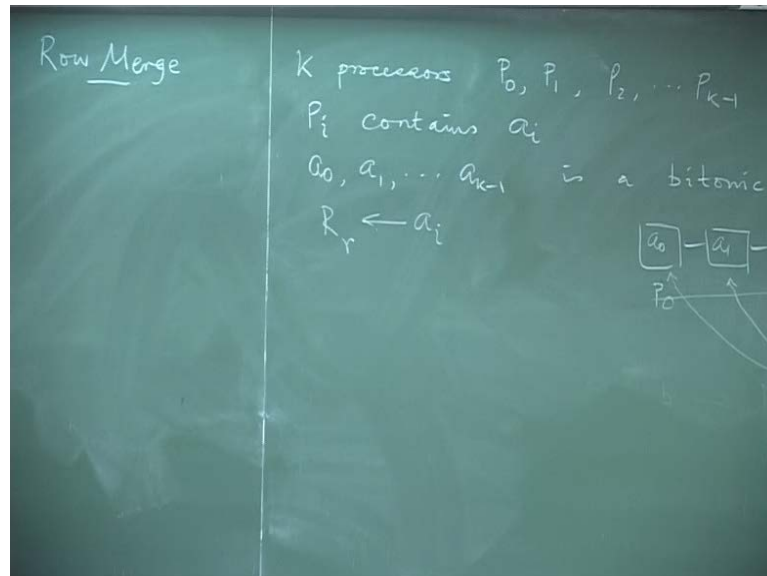 Row Merge
K processors P₀, P₁, P₂, ... P_{K-1}
P_i contains a_i
a₀, a₁, ... a_{K-1} is a bitonic
R_r ← a_i
a₀ - a₁ -
P₀